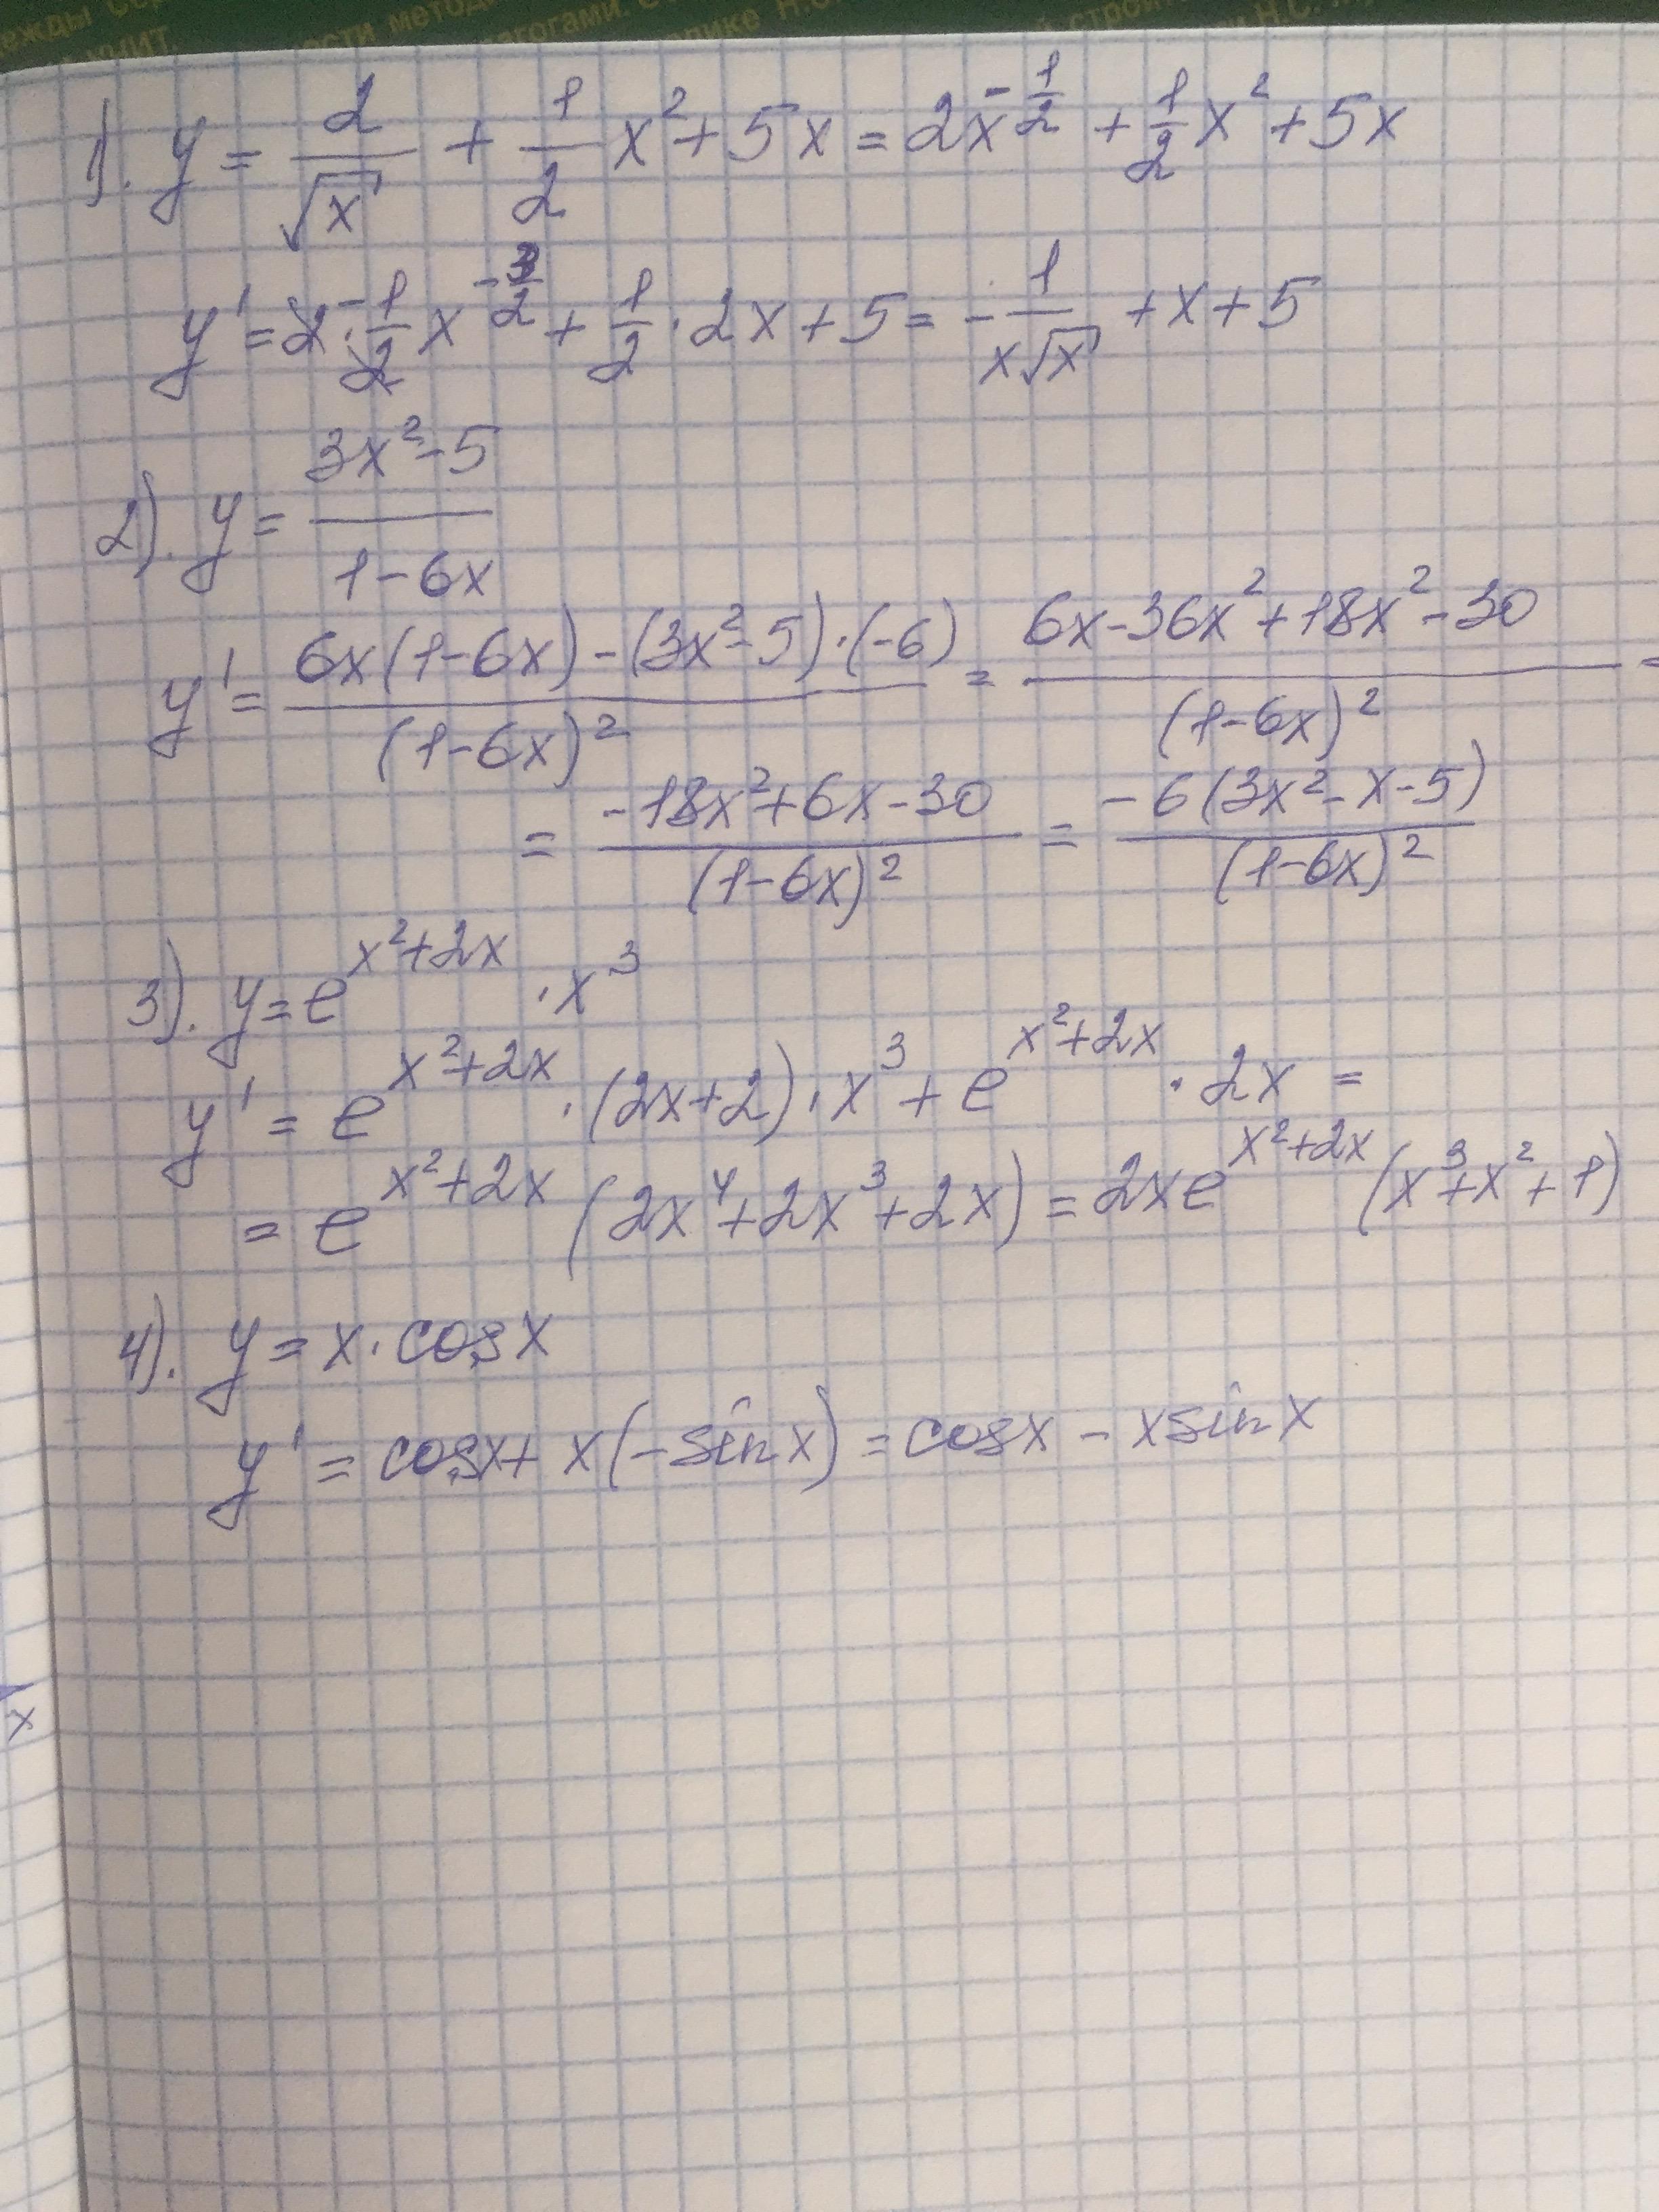 1). y = 2/√x + 1/2 x² + 5x = 2x^(-1/2) + 1/2 x² + 5x
y' = 2·-1/2 x^(-3/2) + 1/2 · 2x + 5 = - 1/(x√x) + x + 5
2). y = (3x² - 5)/(1 - 6x)
y' = (6x(1-6x) - (3x²-5)·(-6))/(1-6x)² = (6x - 36x² + 18x² - 30)/(1-6x)² =
= (-18x² + 6x - 30)/(1-6x)² = (-6(3x² - x - 5))/(1-6x)²
3). y = e^(x²+2x) · x³
y' = e^(x²+2x) · (2x+2) · x³ + e^(x²+2x) · 2x =
= e^(x²+2x) (2x⁴ + 2x³ + 2x) = 2xe^(x²+2x) (x³ + x² + 1)
4). y = x · cosx
y' = cosx + x(-sinx) = cosx - xsinx
x